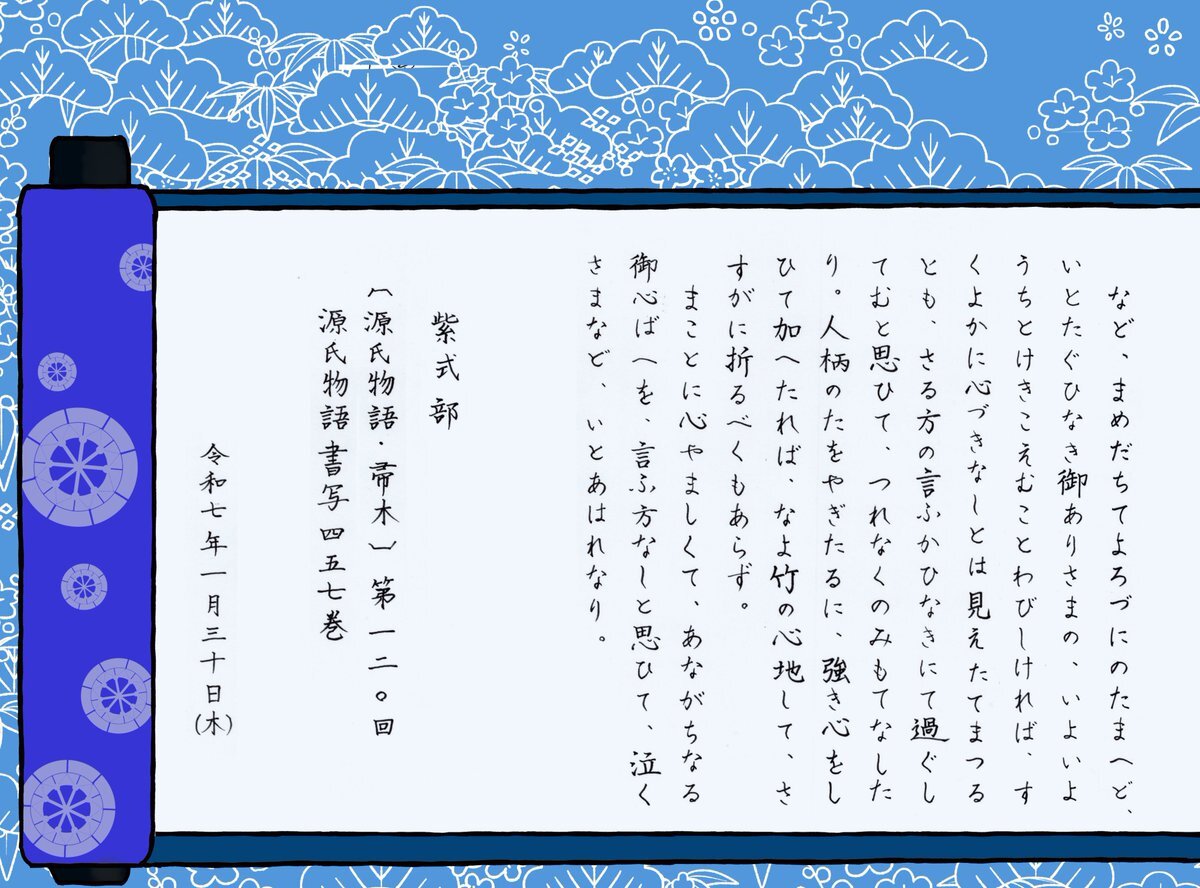 など、まめだちてよろづにのたまへど、
いとたぐひなき御ありさまの、いよいよ
うちとけきこえむことわびしければ、す
くよかに心づきなしとは見えたてまつる
とも、さる方の言ふかひなきにて過ぐし
てむと思ひて、つれなくのみもてなした
り。人柄のたをやぎたるに、強き心をし
ひて加へたれば、なよ竹の心地して、さ
すがに折るべくもあらず。
まことに心やましくて、あながちなる
御心ばへを、言ふ方なしと思ひて、泣く
さまなど、いとあはれなり。
紫式部
(源氏物語・帚木) 第一二〇回
源氏物語書写四五七巻
令和七年一月三十日(木)